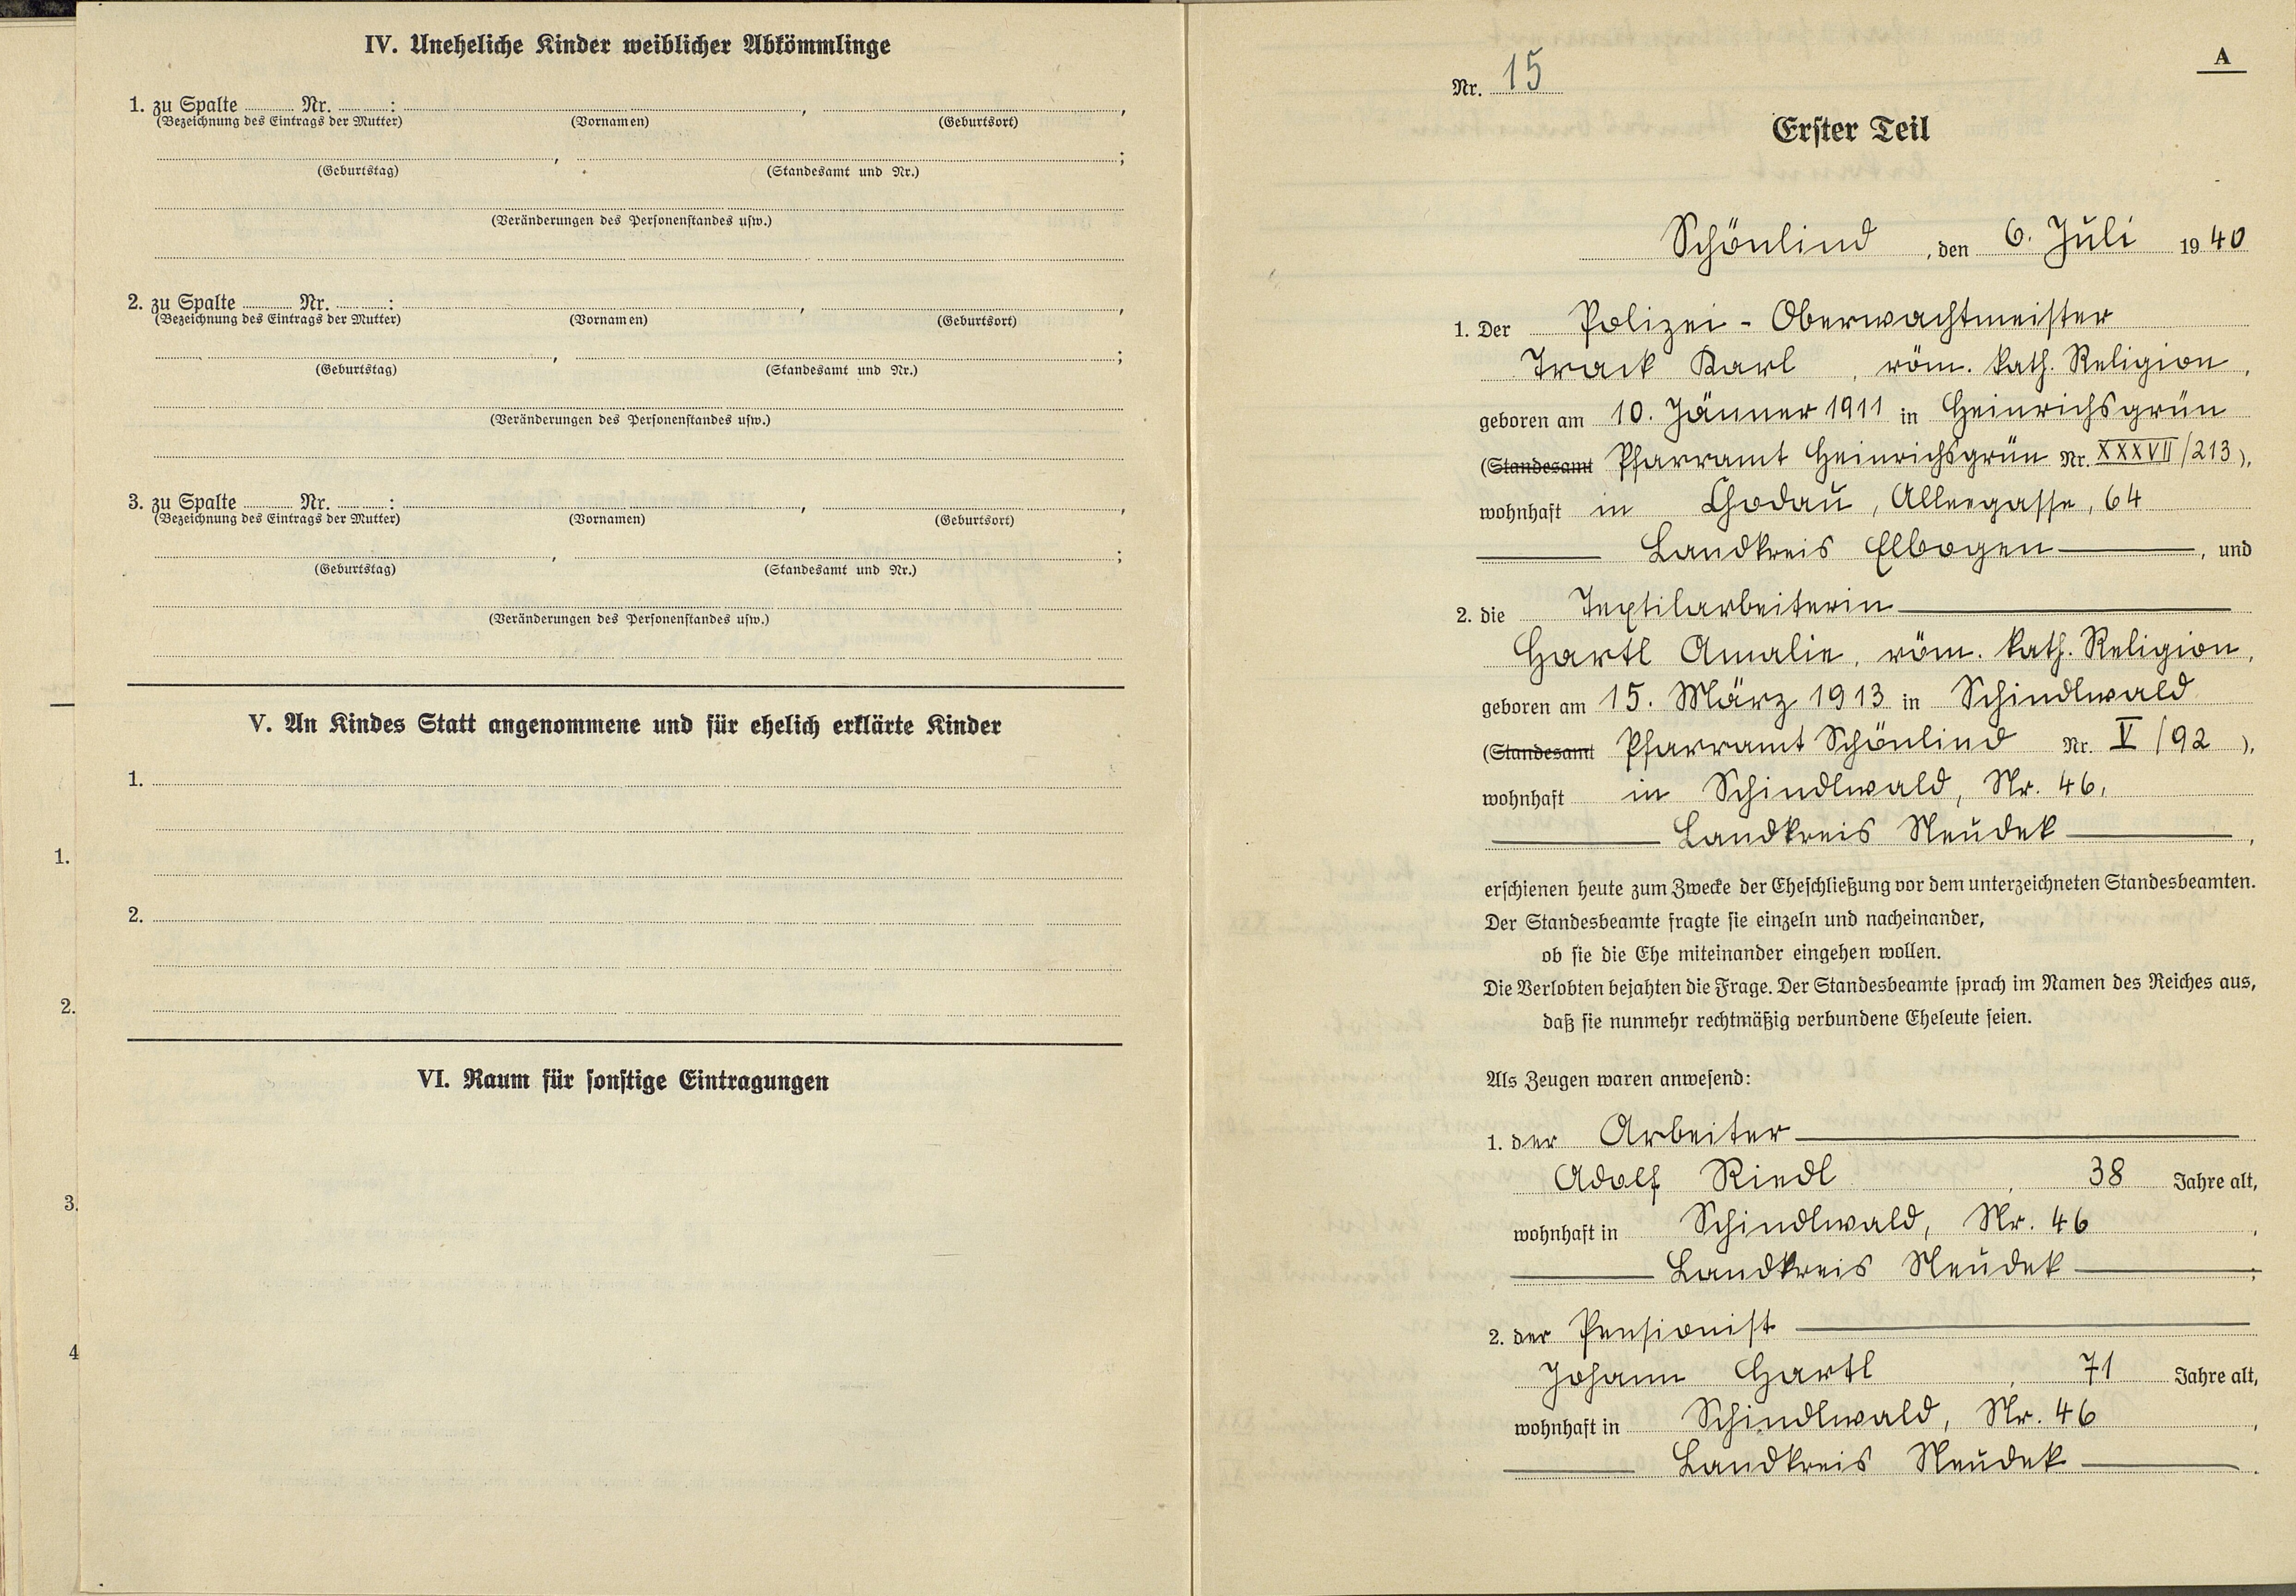 IV. Uneheliche Kinder weiblicher Abkömmlinge
1. zu Spalte Nr. : , ,
(Bezeichnung des Eintrags der Mutter) (Vornamen) (Geburtsort)
, ;
(Geburtstag) (Standesamt und Nr.)
(Veränderungen des Personenstandes usw.)
2. zu Spalte Nr. : , ,
(Bezeichnung des Eintrags der Mutter) (Vornamen) (Geburtsort)
, ;
(Geburtstag) (Standesamt und Nr.)
(Veränderungen des Personenstandes usw.)
3. zu Spalte Nr. : , ,
(Bezeichnung des Eintrags der Mutter) (Vornamen) (Geburtsort)
, ;
(Geburtstag) (Standesamt und Nr.)
(Veränderungen des Personenstandes usw.)
V. An Kindes Statt angenommene und für ehelich erklärte Kinder
1.
2.
VI. Raum für sonstige Eintragungen
1.
2.
3.
4
A
Nr. 15
Erster Teil
Schönlind, den 6. Juli 1940
1. Der Polizei-Oberwachtmeister
Track Karl, röm. kath. Religion,
geboren am 10. Jänner 1911 in Heinrichsgrün
(Standesamt Pfarramt Heinrichsgrün Nr. XXXVII/213),
wohnhaft in Chodau, Alleegasse, 64
Landkreis Elbogen, und
2. die Textilarbeiterin
Hartl Amalie, röm. kath. Religion,
geboren am 15. März 1913 in Schindlwald
(Standesamt Pfarramt Schönlind Nr. V/92),
wohnhaft in Schindlwald, Nr. 46,
Landkreis Neudek,
erschienen heute zum Zwecke der Eheschließung vor dem unterzeichneten Standesbeamten.
Der Standesbeamte fragte sie einzeln und nacheinander,
ob sie die Ehe miteinander eingehen wollen.
Die Verlobten bejahten die Frage. Der Standesbeamte sprach im Namen des Reiches aus,
daß sie nunmehr rechtmäßig verbundene Eheleute seien.
Als Zeugen waren anwesend:
1. der Arbeiter
Adolf Riedl, 38 Jahre alt,
wohnhaft in Schindlwald, Nr. 46,
Landkreis Neudek;
2. der Pensionist
Johann Hartl, 71 Jahre alt,
wohnhaft in Schindlwald, Nr. 46,
Landkreis Neudek.